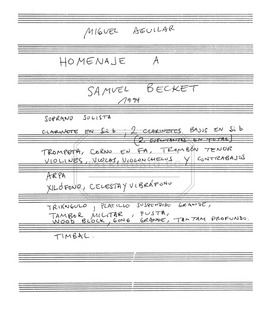 MIGUEL AGUILAR
HOMENAJE A
SAMUEL BECKET
1994
SOPRANO SOLISTA
CLARINETE EN Sib; 2 CLARINETES BAJOS EN Sib
(2 EN TOTAL)
TROMPETA, CORNO EN FA, TROMBÓN TENOR
VIOLINES, VIOLAS, VIOLONCHELOS Y CONTRABAJOS
ARPA
XILÓFONO, CELESTA Y VIBRÁFONO
TRIÁNGULO, PLATILLO SUSPENDIDO GRANDE,
TAMBOR MILITAR, FUSTA,
WOOD BLOCK, GONG GRANDE, TAMTAM PROFUNDO.
TIMBAL.